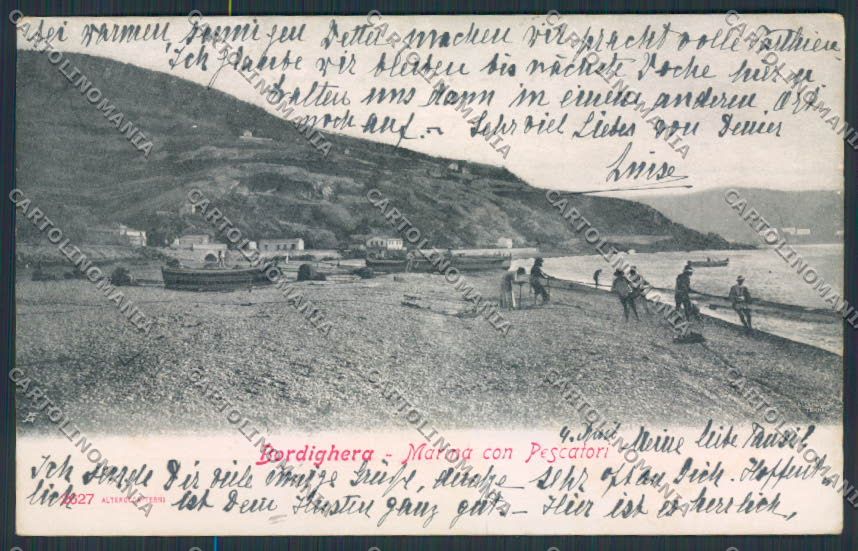 bei warmen sonnigen Wetter machen wir prachtvolle Parthien
Ich glaube wir bleiben bis nächste Woche hier u
halten uns dann in einem anderen Ort
noch auf. – Sehr viel Liebes von Deiner
Luise
Bordighera - Marina con Pescatori
4. April Meine liebe
Ich sende Dir viele innige Grüße, denke sehr oft an Dich. Hoffent-
lich ist Dein Husten ganz gut – Hier ist es herrlich,
2627 ALTEROCCA TERNI
CARTOLINOMANIA